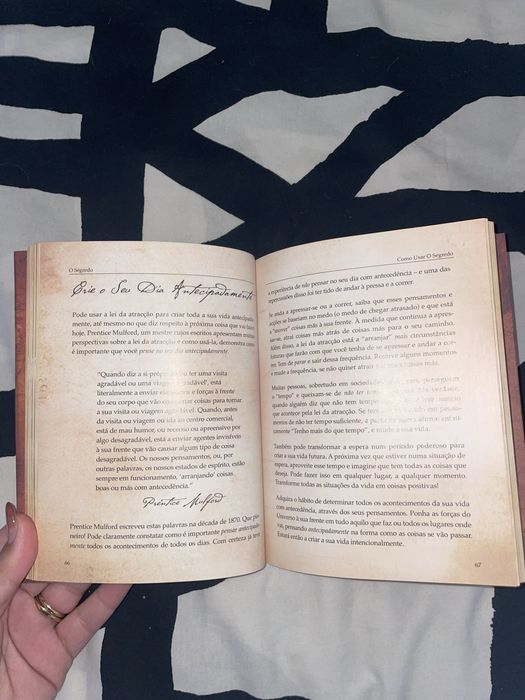 O Segredo
Crie o Seu Dia Antecipadamente
Pode usar a lei da atracção para criar toda a sua vida antecipada-
mente, até mesmo no que diz respeito à próxima coisa que vai fazer
hoje. Prentice Mulford, um mestre cujos escritos apresentam muitas
perspectivas sobre a lei da atracção e como usá-la, demonstra como
é importante que você pense no seu dia antecipadamente.
"Quando diz a si próprio: 'Vou ter uma visita
agradável ou uma viagem agradável', está
literalmente a enviar elementos e forças à frente
do seu corpo que vão arranjar coisas para tornar
a sua visita ou viagem agradável. Quando, antes
da visita ou da viagem ou ida ao centro comercial,
está de mau humor, ou receoso ou apreensivo por
algo desagradável, está a enviar agentes invisíveis
à sua frente que vão causar algum tipo de coisa
desagradável. Os nossos pensamentos, ou, por
outras palavras, os nossos estados de espírito, estão
sempre em funcionamento, 'arranjando' coisas
boas ou más com antecedência."
Prentice Mulford
Prentice Mulford escreveu estas palavras na década de 1870. Que pio-
neiro! Pode claramente constatar como é importante pensar antecipada-
mente todos os acontecimentos de todos os dias. Com certeza já teve
66
Como Usar O Segredo
a experiência de não pensar no seu dia com antecedência – e uma das
repercussões disso foi ter tido de andar à pressa e a correr.
Se anda a apressar-se ou a correr, saiba que esses pensamentos e
acções se baseiam no medo (o medo de chegar atrasado) e que está
a "mover" coisas más à sua frente. À medida que continua a apres-
sar-se, atrai coisas más atrás de coisas más para o seu caminho.
Além disso, a lei da atracção está a "arranjar" mais circunstâncias
futuras que farão com que você tenha de se apressar e andar a cor-
rer. Tem de parar e sair dessa frequência. Reserve alguns momentos
e mude a frequência, se não quiser atrair coisas más.
Muitas pessoas, sobretudo em sociedades
o "tempo" e queixam-se de não ter
quando alguém diz que não tem tempo
que acontece pela lei da atracção. Se tem
de não ter tempo suficiente, a partir de agora afirme
"Tenho mais do que tempo", e mude a sua vida.
Também pode transformar a espera num período poderoso para
criar a sua vida futura. A próxima vez que estiver numa situação de
espera, aproveite esse tempo e imagine que tem todas as coisas que
deseja. Pode fazer isso em qualquer lugar, a qualquer momento.
Transforme todas as situações da vida em coisas positivas!
Adquira o hábito de determinar todos os acontecimentos da sua vida
com antecedência, através dos seus pensamentos. Ponha as forças do
Universo à sua frente em tudo aquilo que faz ou todos os lugares onde
vai, pensando antecipadamente na forma como as coisas se vão passar.
Estará então a criar a sua vida intencionalmente.
67